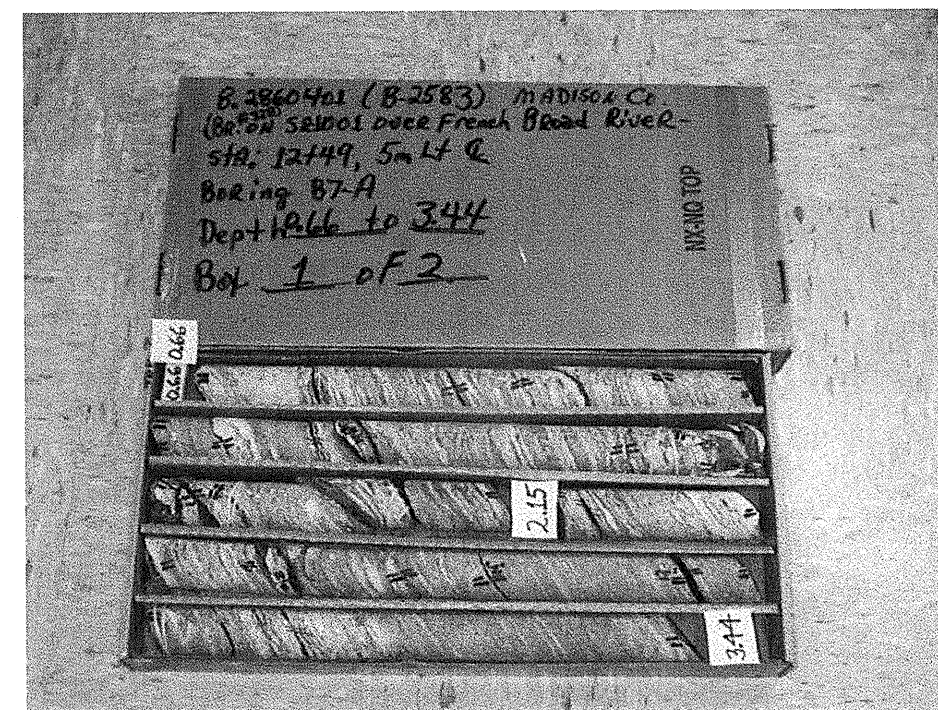 8.2860401 (B-2583) MADISON Co
(BR. #330 ON SR1001 OVER French BRoad RiveR-
sta: 12+49, 5m Lt ℄
BoRing B7-A
Depth 0.66 to 3.44
Box 1 oF 2
NX-NQ TOP
0.66 0.66
2.15
3.44